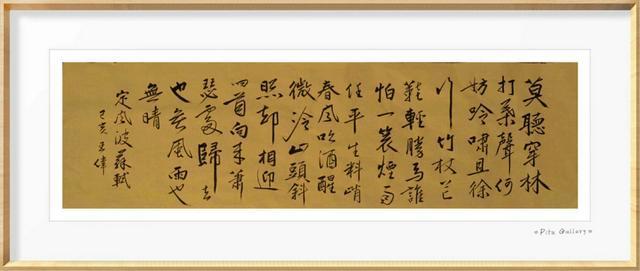 莫聽穿林
打葉聲何
妨吟嘯且徐
行竹杖芒
鞋輕勝馬誰
怕一蓑煙雨
任平生料峭
春風吹酒醒
微冷山頭斜
照卻相迎
回首向來蕭
瑟處歸去
也无風雨也
無晴
定風波蘇軾
己亥王偉
¤Pita Gallery¤